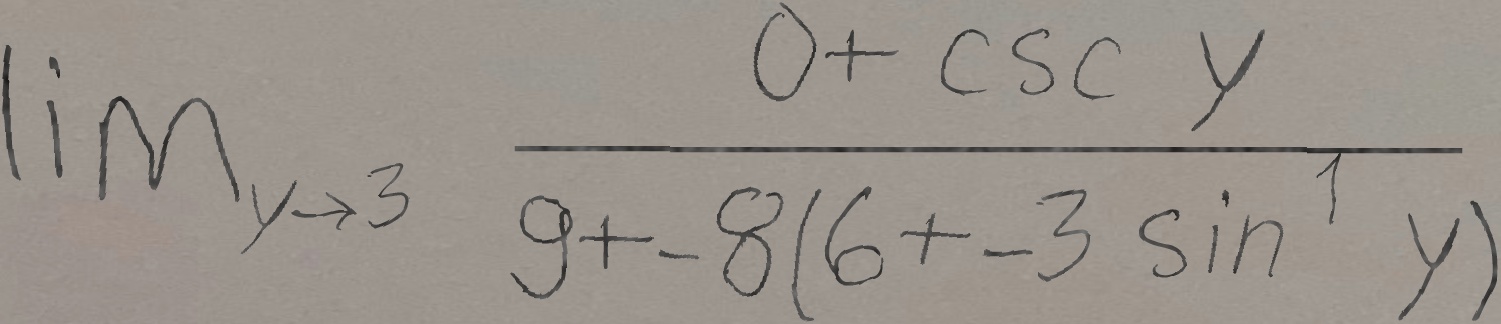 \lim_{y \to 3} \frac{0 + \csc y}{9 + -8(6 + -3 \sin^1 y)}